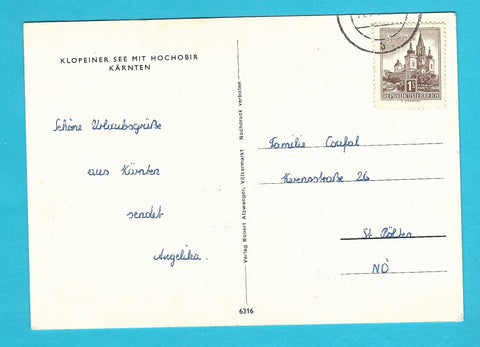 KLOPEINER SEE MIT HOCHOBIR
KÄRNTEN
Schöne Urlaubsgrüße
aus Kärnten
sendet
Angelika.
Verlag Robert Atzwanger, Völkermarkt Nachdruck verboten
6316
REPUBLIK ÖSTERREICH
Familie Coufal
straße 26
St. Pölten
NÖ